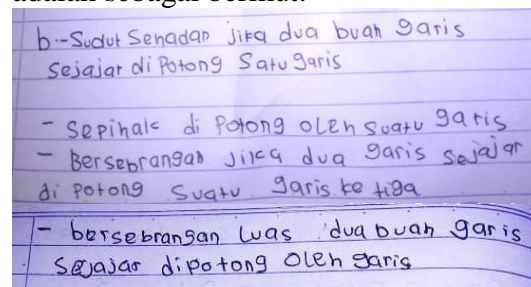 b.-Sudut Senadan jika dua buah garis
sejajar di Potong Satu garis
- Sepihak di Potong oleh suatu garis
- Bersebrangan jika dua garis sejajar
di potong suatu garis ke tiga
- bersebrangan luas dua buah garis
sejajar dipotong oleh garis